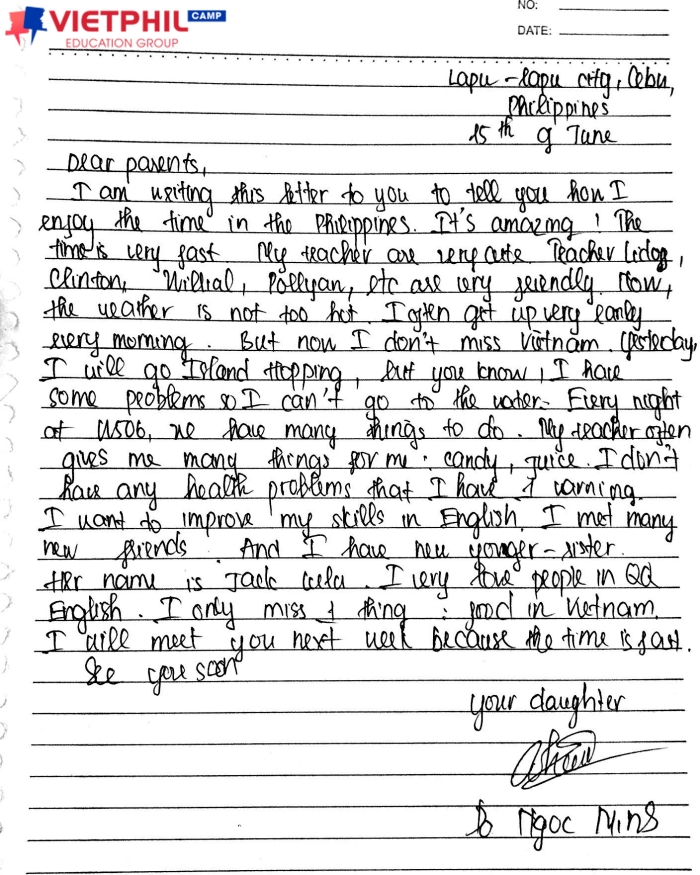 VIETPHIL CAMP
EDUCATION GROUP
NO:
DATE:
Lapu - Lapu city, Cebu,
Philippines
15th of June
Dear parents,
I am writing this letter to you to tell you how I
enjoy the time in the Philippines. It's amazing! The
time is very fast My teacher are very cute. Teacher
Clinton, Pollyan, etc are very friendly. Now,
the weather is not too hot. I often get up very early
every morning. But now I don't miss Vietnam. Yesteday,
I will go Island Hopping, but you know, I have
some problems so I can't go to the water. Every night
at U506, we have many things to do. My teacher often
gives me many things for me: candy, juice. I don't
have any health problems that I have 1 warning.
I want to improve my skills in English. I met many
new friends. And I have new yonger-sister.
Her name is Jack. I very love people in QQ
English. I only miss 1 thing: food in Vietnam.
I will meet you next week because the time is fast.
See you soon
your daughter
Ngoc Minh